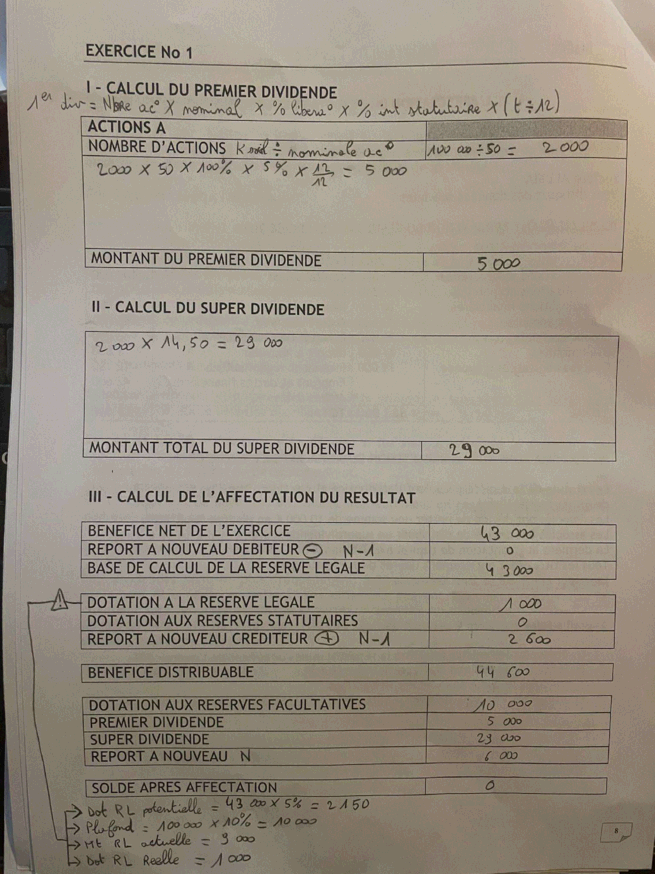 EXERCICE No 1
I - CALCUL DU PREMIER DIVIDENDE
1er div = Nbre ac° X nominal X % libera° X % int statutaire X (t ÷ 12)
ACTIONS A
NOMBRE D'ACTIONS K social ÷ nominale ac° 100 000 ÷ 50 = 2 000
2000 X 50 X 100% X 5% X 12/12 = 5 000
MONTANT DU PREMIER DIVIDENDE 5 000
II - CALCUL DU SUPER DIVIDENDE
2 000 X 14,50 = 29 000
MONTANT TOTAL DU SUPER DIVIDENDE 29 000
III - CALCUL DE L'AFFECTATION DU RESULTAT
BENEFICE NET DE L'EXERCICE 43 000
REPORT A NOUVEAU DEBITEUR - N-1 0
BASE DE CALCUL DE LA RESERVE LEGALE 43 000
! DOTATION A LA RESERVE LEGALE 1 000
DOTATION AUX RESERVES STATUTAIRES 0
REPORT A NOUVEAU CREDITEUR + N-1 2 600
BENEFICE DISTRIBUABLE 44 600
DOTATION AUX RESERVES FACULTATIVES 10 000
PREMIER DIVIDENDE 5 000
SUPER DIVIDENDE 29 000
REPORT A NOUVEAU N 6 000
SOLDE APRES AFFECTATION 0
→ Dot RL potentielle = 43 000 X 5% = 2150
→ Plafond = 100 000 X 10% = 10 000
→ Mt RL actuelle = 9 000
→ Dot RL Reelle = 1 000
8